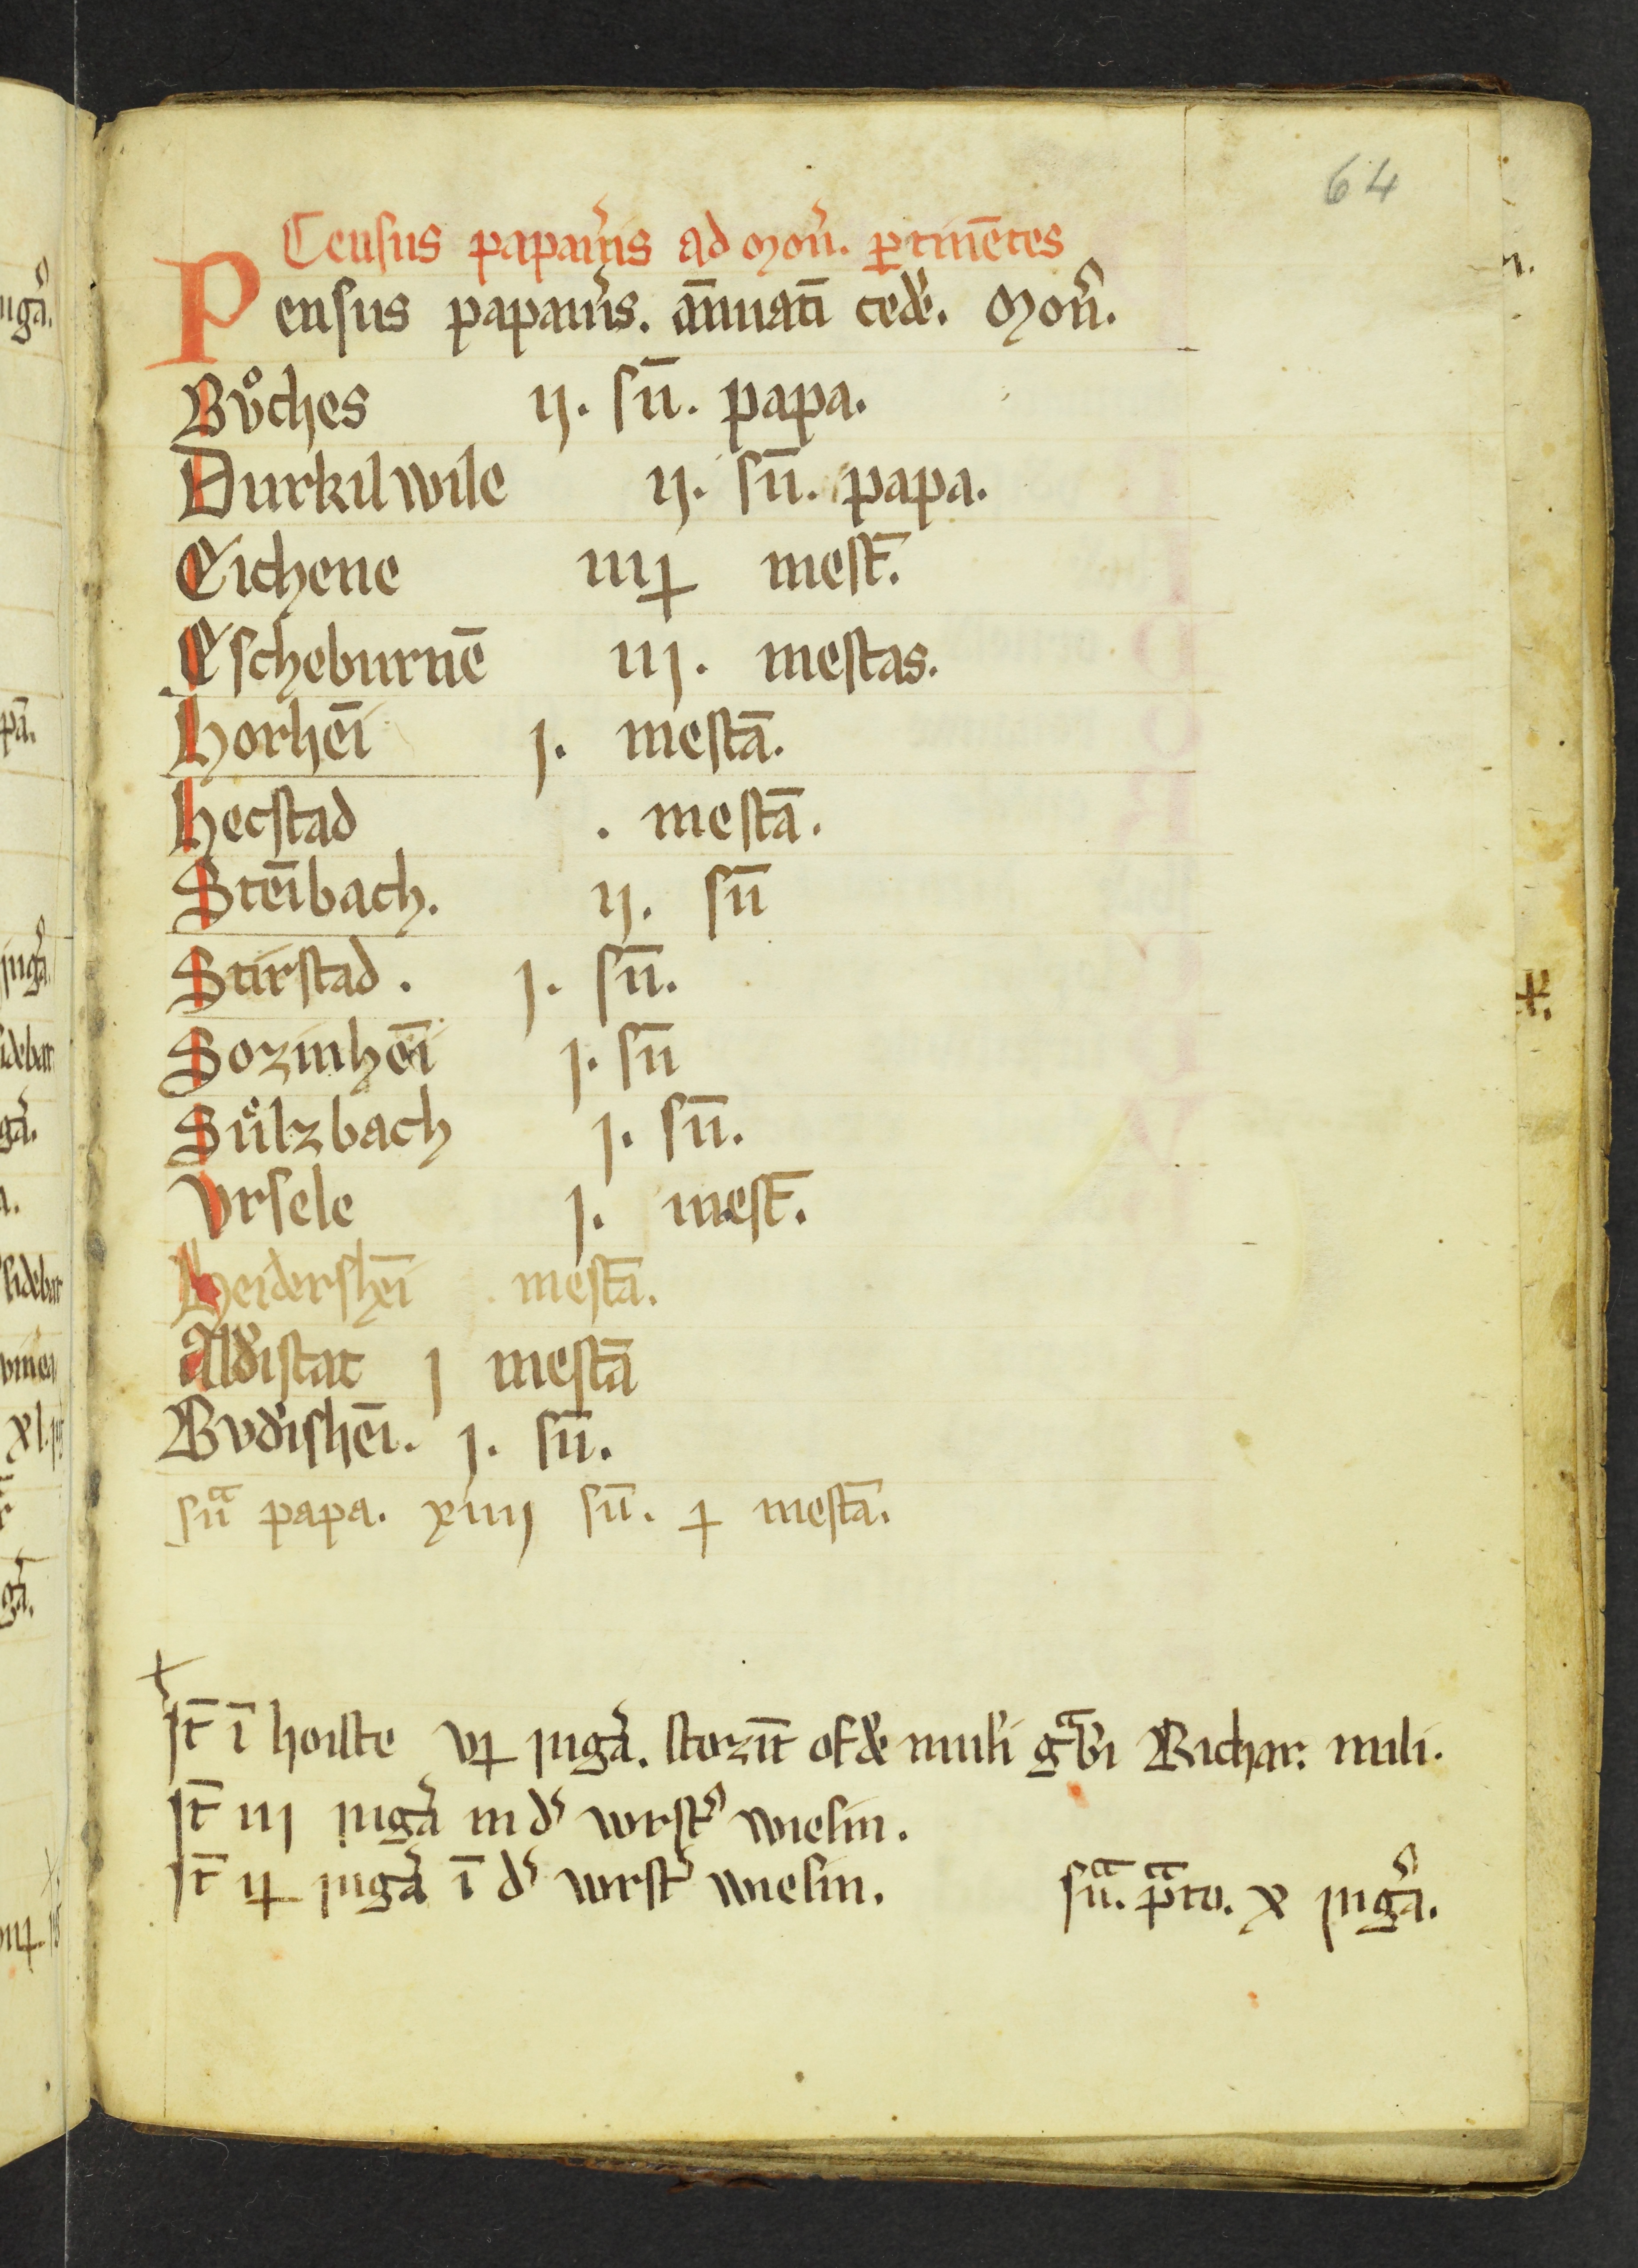 64
Census papau͛is ad Mon͛. ꝑtinētes
Pensus papau͛is. ānuatī ced͛e. Mon͛.
Bůches ij. sū. papa.
Durkilwile ij. sū. papa.
Eichene iiij mest̄.
Escheburnē iij. mestas.
Horhēi j. mestā.
Hecstad . mestā.
Stēibach. ij. sū
Stirstad. j. sū.
Sozinhēi j. sū
Sůlzbach j. sū.
Vrsele j. mest̄.
Heidershēi . mestā.
Ald͛istat j mestā
Bvd͛ishēi. j. sū.
sūᵃ papa. xiiij sū. ɟ mestā.
It̄ ī hoiste vɟ iug͛a. Richar. mili.
It̄ iij iug͛a in d͛ vorst͛ wiesin.
It̄ iɟ iug͛a ī d͛ vorst͛ wiesin. sūᵃ. pᵃto. x iug͛a.